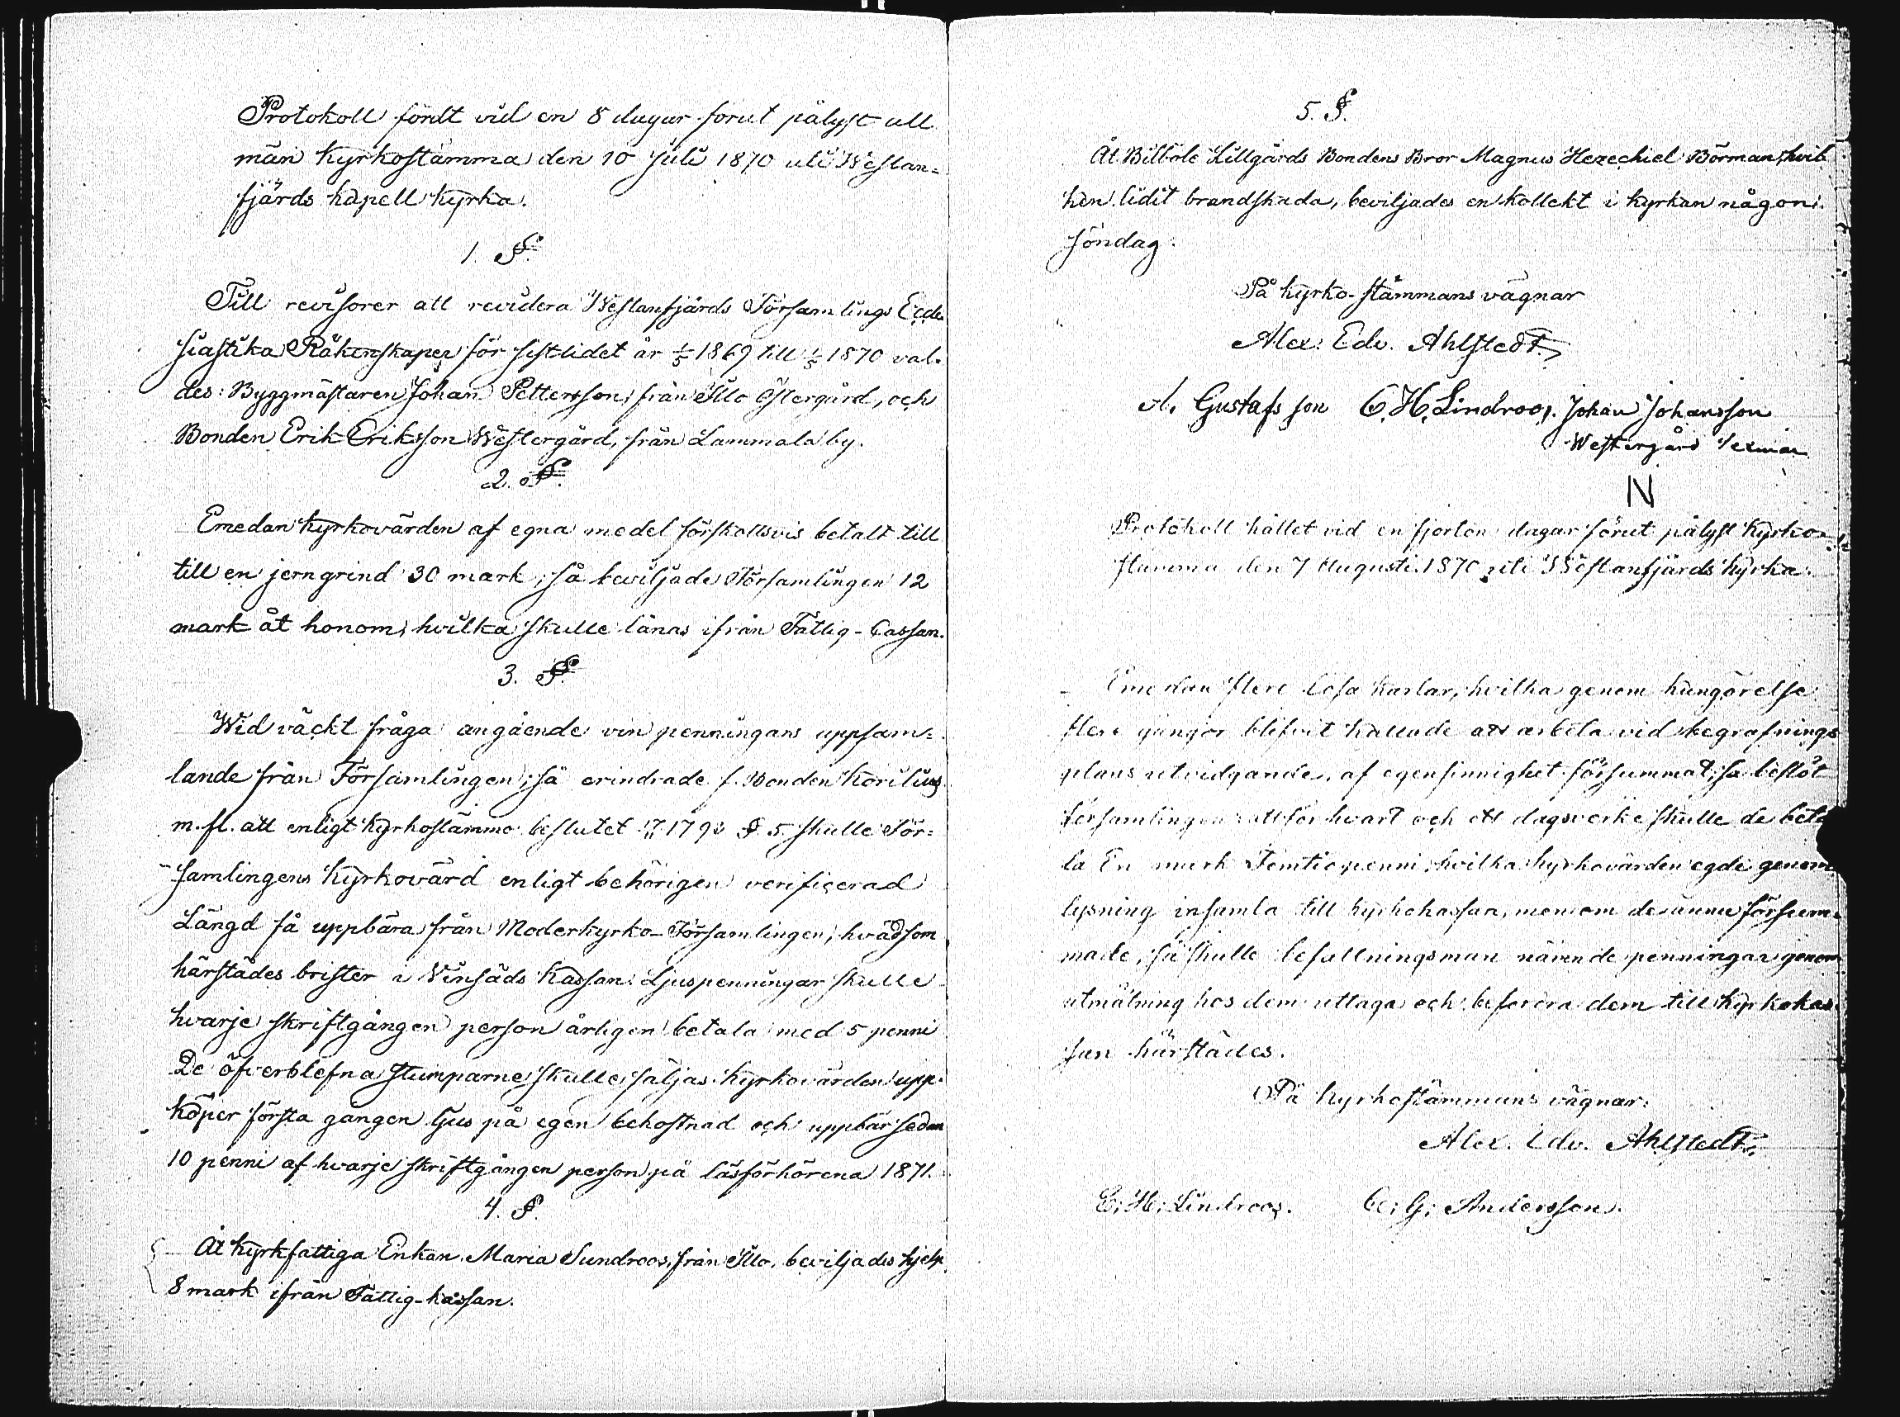 Protokoll fördt vid en 8 dagar förut pålyst all
män kyrkostämma den 10 Juli 1870 uti Westan=
fjärds kapell kyrka.
1. §.
Till revisorer att revidera Westanfjärds Församlings Eccle
siastika Räkenskaper för sistlidet år 1/5 1869 till 1/5 1870 val-
des: Byggmästaren Johan Pettersson från Illo Östergård, och
Bonden Erik Eriksson Westergård, från Lammala by.
2. §.
Emedan kyrkovärden af egna medel förskottsvis betalt till
till en jerngrind 30 mark, så beviljade Församlingen 12
mark åt honom, hvilka skulle lånas ifrån Fattig-Cassan.
3. §.
Wid väckt fråga angående vin penningars uppsam=
lande från Församlingen; så erindrade f. Bonden Korilius
m. fl. att enligt kyrkostämmo beslutet 1792 §. 5. skulle För=
samlingens kyrkovärd enligt behörigen verificerad
Längd få uppbära från Moderkyrko-Församlingen, hvad som
härstädes brister i Vinsäds kassan. Ljuspenningar skulle
hvarje skriftgången person årligen betala med 5 penni
De öfverblefna stumparne skulle säljas. Kyrkovärden upp-
köper första gången ljus på egen bekostnad och uppbär sedan
10 penni af hvarje skriftgången person på läsförhörena 1871.
4. §.
Åt kyrkfattiga Enkan Maria Sundroos, från Illo, beviljades hjelp
8 mark ifrån Fattig-kassan.
5. §.
Åt Bilböle Lillgårds Bondens Bror Magnus Hezechiel Börman, hvil
ken lidit brandskada, beviljades en kollekt i kyrkan någon
söndag.
På kyrko-stämmans vägnar
Alex: Edv. Ahlstedt.
A. Gustafsson C. H. Lindroos. Johan Johansson
Westergård
N
Protokoll hållet vid en fjorton dagar förut pålyst kyrko-
stämma den 7 Augusti 1870 uti Westanfjärds kyrka.
Emedan flere lösa karlar, hvilka genom kungörelse
flere gångor blifvit kallade att arbeta vid begrafnings
plans utvidgande, af egensinnighet försummat; så beslöt
församlingen att för hvart och ett dagsverke skulle de beta
la En mark Femtio penni, hvilka kyrkovärden egde genom
lysning insamla till kyrkokassan, men om de ännu försum-
made, så skulle befallningsman nämnde penningar genom
utmätning hos dem uttaga och befordra dem till kyrkokas
san härstädes.
På kyrkostämmans vägnar:
Alex. Edv. Ahlstedt.
C. H. Lindroos. C. G. Andersson.